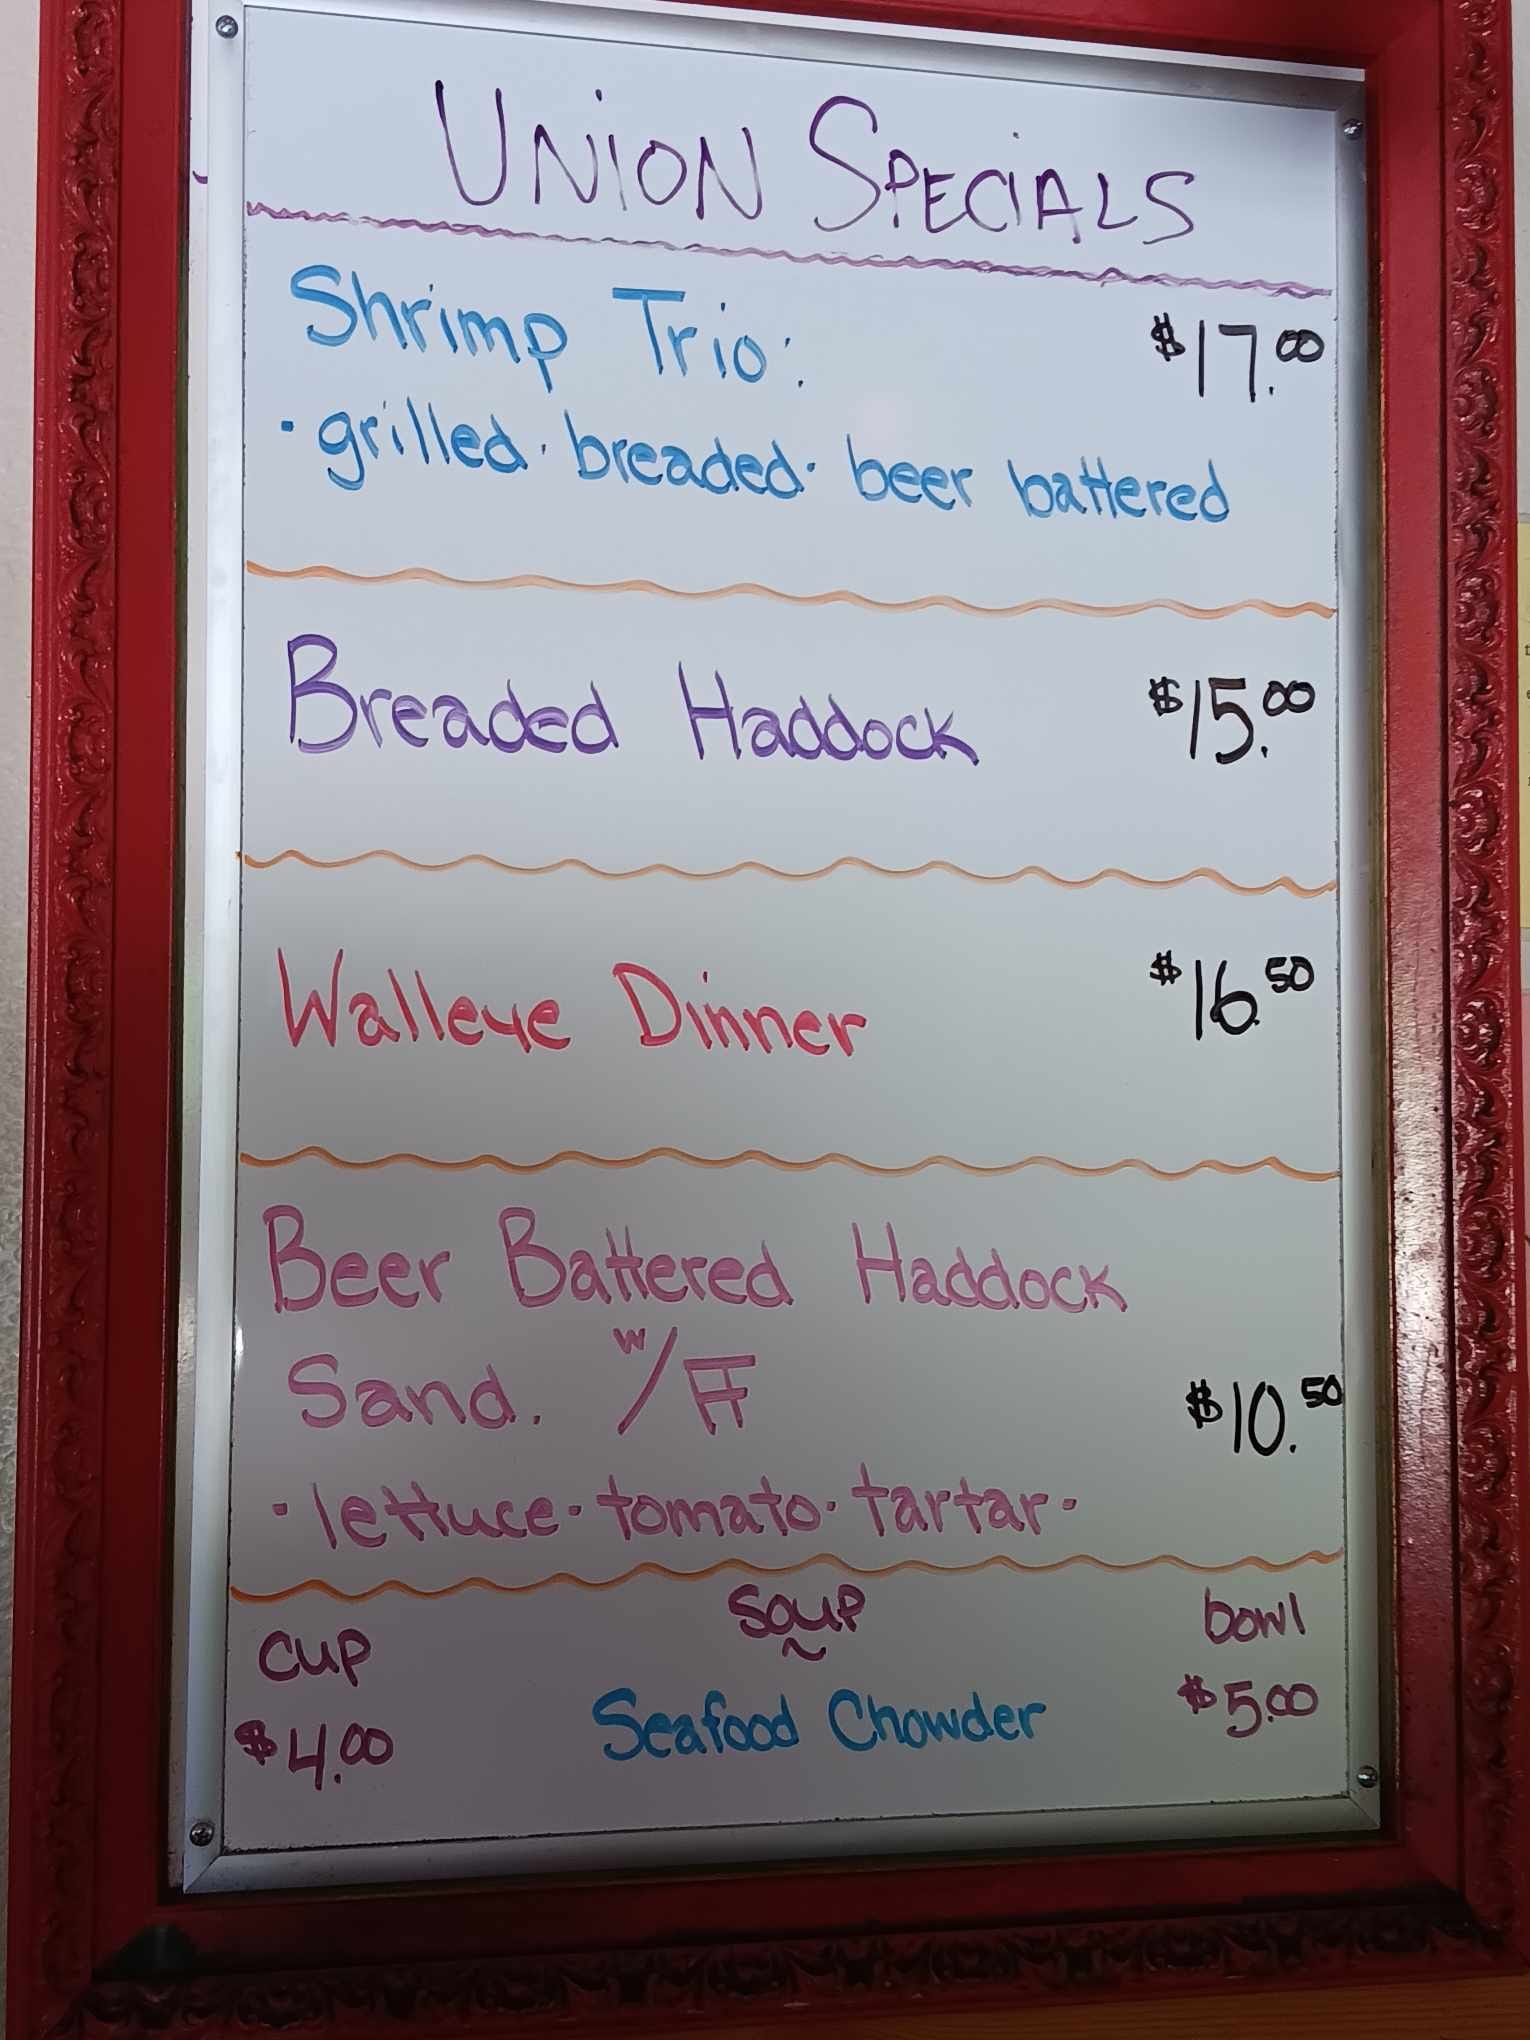 UNION SPECIALS
Shrimp Trio: $17.00
· grilled · breaded · beer battered
Breaded Haddock $15.00
Walleye Dinner $16.50
Beer Battered Haddock
Sand. w/ FF $10.50
· lettuce · tomato · tartar ·
cup soup bowl
$4.00 Seafood Chowder $5.00